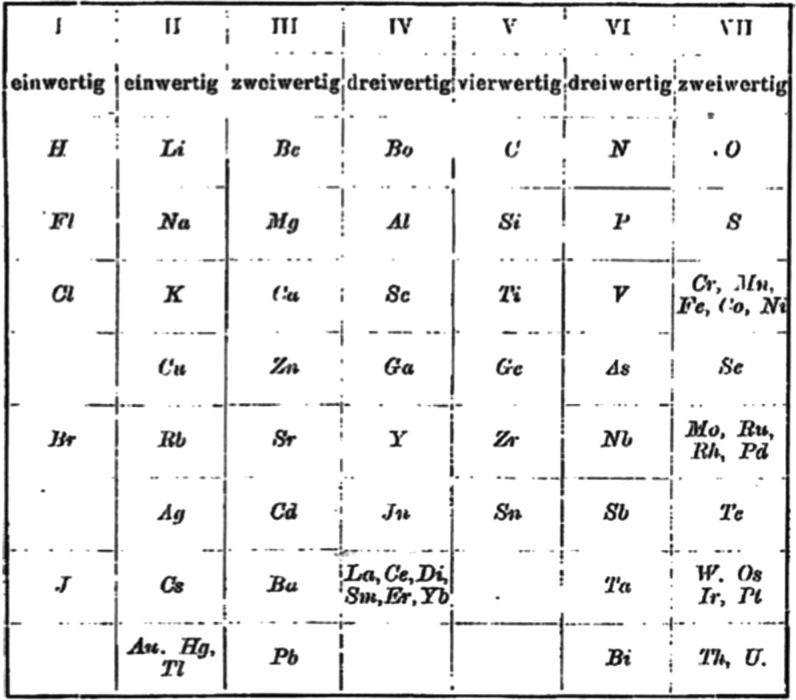 I II III IV V VI VII
einwertig einwertig zweiwertig dreiwertig vierwertig dreiwertig zweiwertig
H Li Be Bo C N O
Fl Na Mg Al Si P S
Cl K Ca Sc Ti V Cr, Mn,
Fe, Co, Ni
Cu Zn Ga Ge As Se
Br Rb Sr Y Zr Nb Mo, Ru,
Rh, Pd
Ag Cd Jn Sn Sb Te
J Cs Ba La, Ce, Di, Ta W. Os
Sm, Er, Yb Ir, Pt
Au. Hg, Pb Bi Th, U.
Tl